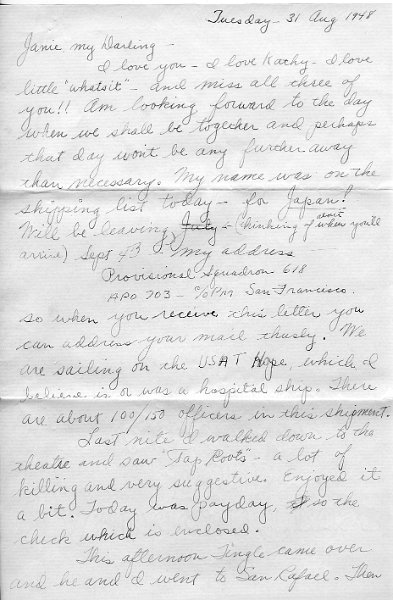 Tuesday - 31 Aug 1948
Janie my Darling -
I love you - I love Kathy - I love
little "whatsit" - and miss all three of
you!! Am looking forward to the day
when we shall be together and perhaps
that day won't be any further away
than necessary. My name was on the
shipping list today - for Japan!
Will be leaving July - (thinking of when you'll
arrive) Sept 4 - My address
Provisional Squadron 618
APO 703 - c/o PM San Francisco.
so when you receive this letter you
can address your mail thusly. We
are sailing on the USAT Hope, which I
believe is or was a hospital ship. There
are about 100/150 officers in this shipment.
Last nite I walked down to the
theatre and saw "Tap Roots" - a lot of
killing and very suggestive. Enjoyed it
a bit. Today was payday, so the
check which is enclosed.
This afternoon Tingle came over
and he and I went to San Rafael. Then